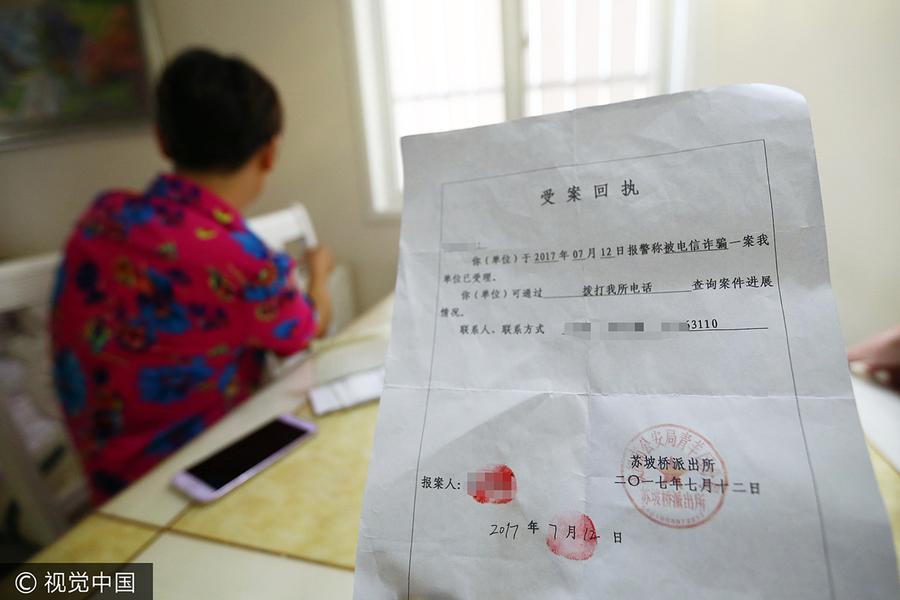 受案回执
你（单位）于2017年07月12日报警称被电信诈骗一案我
单位已受理。
你（单位）可通过 拨打我所电话 查询案件进展
情况。
联系人、联系方式 53110
苏坡桥派出所
二〇一七年七月十二日
公安局青羊
苏坡桥派出所
报案人：
2017 年 7 月 12 日
© 视觉中国